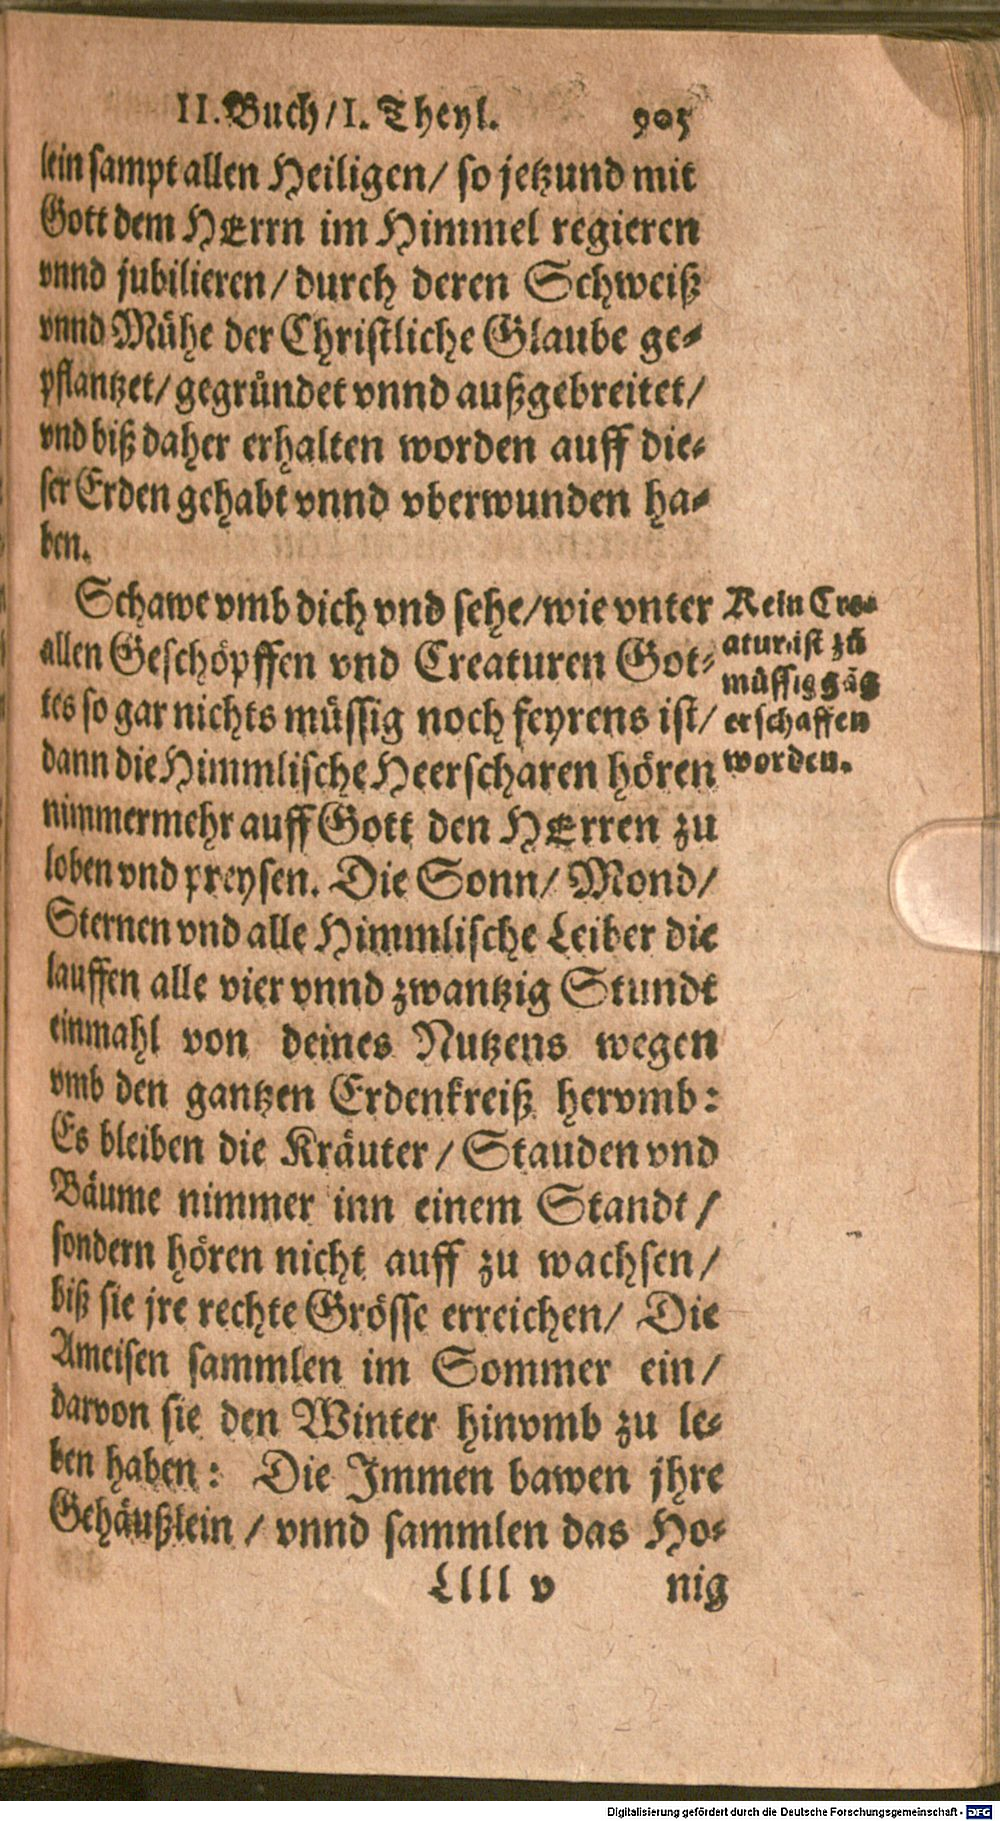 II. Buch/ I. Theyl. 905
lein sampt allen Heiligen/ so jetzund mit
Gott dem HErrn im Himmel regieren
vnnd jubilieren/ durch deren Schweiß
vnnd Mühe der Christliche Glaube ge-
pflantzet/ gegründet vnnd außgebreitet/
vnd biß daher erhalten worden auff die-
ser Erden gehabt vnnd vberwunden ha-
ben.
Schawe vmb dich vnd sehe/ wie vnter
allen Geschöpffen vnd Creaturen Got-
tes so gar nichts müssig noch feyrens ist/
dann die Himmlische Heerscharen hören
nimmermehr auff Gott den HErren zu
loben vnd preysen. Die Sonn/ Mond/
Sternen vnd alle Himmlische Leiber die
lauffen alle vier vnnd zwantzig Stundt
einmahl von deines Nutzens wegen
vmb den gantzen Erdenkreiß hervmb:
Es bleiben die Kräuter/ Stauden vnd
Bäume nimmer inn einem Standt/
sondern hören nicht auff zu wachsen/
biß sie jre rechte Grösse erreichen/ Die
Ameisen sammlen im Sommer ein/
darvon sie den Winter hinvmb zu le-
ben haben: Die Immen bawen jhre
Gehäußlein/ vnnd sammlen das Ho-
Llll v nig
Kein Cre-
atur ist zů
müssig gäg
erschaffen
worden.
Digitalisierung gefördert durch die Deutsche Forschungsgemeinschaft - DFG